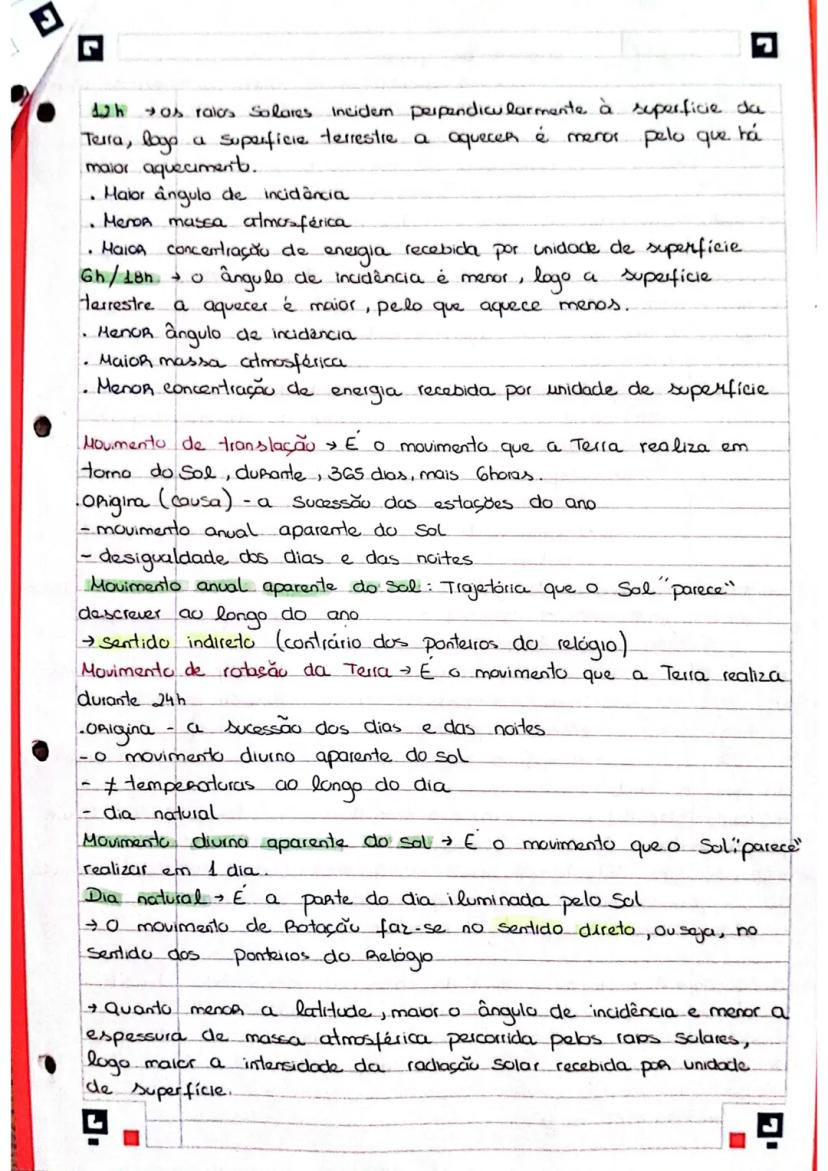 12h → os raios solares incidem perpendicularmente à superfície da
Terra, logo a superfície terrestre a aquecer é menor pelo que há
maior aquecimento.
. Maior ângulo de incidância
. Menor massa atmosférica
. Maior concentração de energia recebida por unidade de superfície
6h/18h → o ângulo de incidância é menor, logo a superfície
terrestre a aquecer é maior, pelo que aquece menos.
. Menor ângulo de incidância
. Maior massa atmosférica
. Menor concentração de energia recebida por unidade de superfície
Movimento de translação → É o movimento que a Terra realiza em
torno do Sol, durante, 365 dias, mais 6horas.
. Origina (causa) - a sucessão das estações do ano
- movimento anual aparente do Sol
- desigualdade dos dias e das noites
Movimento anual aparente do Sol: Trajetória que o Sol "parece"
descrever ao longo do ano
→ sentido indireto (contrário dos ponteiros do relógio)
Movimento de rotação da Terra → É o movimento que a Terra realiza
durante 24h
. Origina - a sucessão dos dias e das noites
- o movimento diurno aparente do sol
- ≠ temperaturas ao longo do dia
- dia natural
Movimento diurno aparente do sol → É o movimento que o Sol "parece"
realizar em 1 dia.
Dia natural → É a parte do dia iluminada pelo Sol
→ O movimento de Rotação faz-se no sentido direto, ou seja, no
sentido dos ponteiros do Relógio
→ Quanto menor a latitude, maior o ângulo de incidência e menor a
espessura de massa atmosférica percorrida pelos raios solares,
logo maior a intensidade da radiação solar recebida por unidade
de superfície.